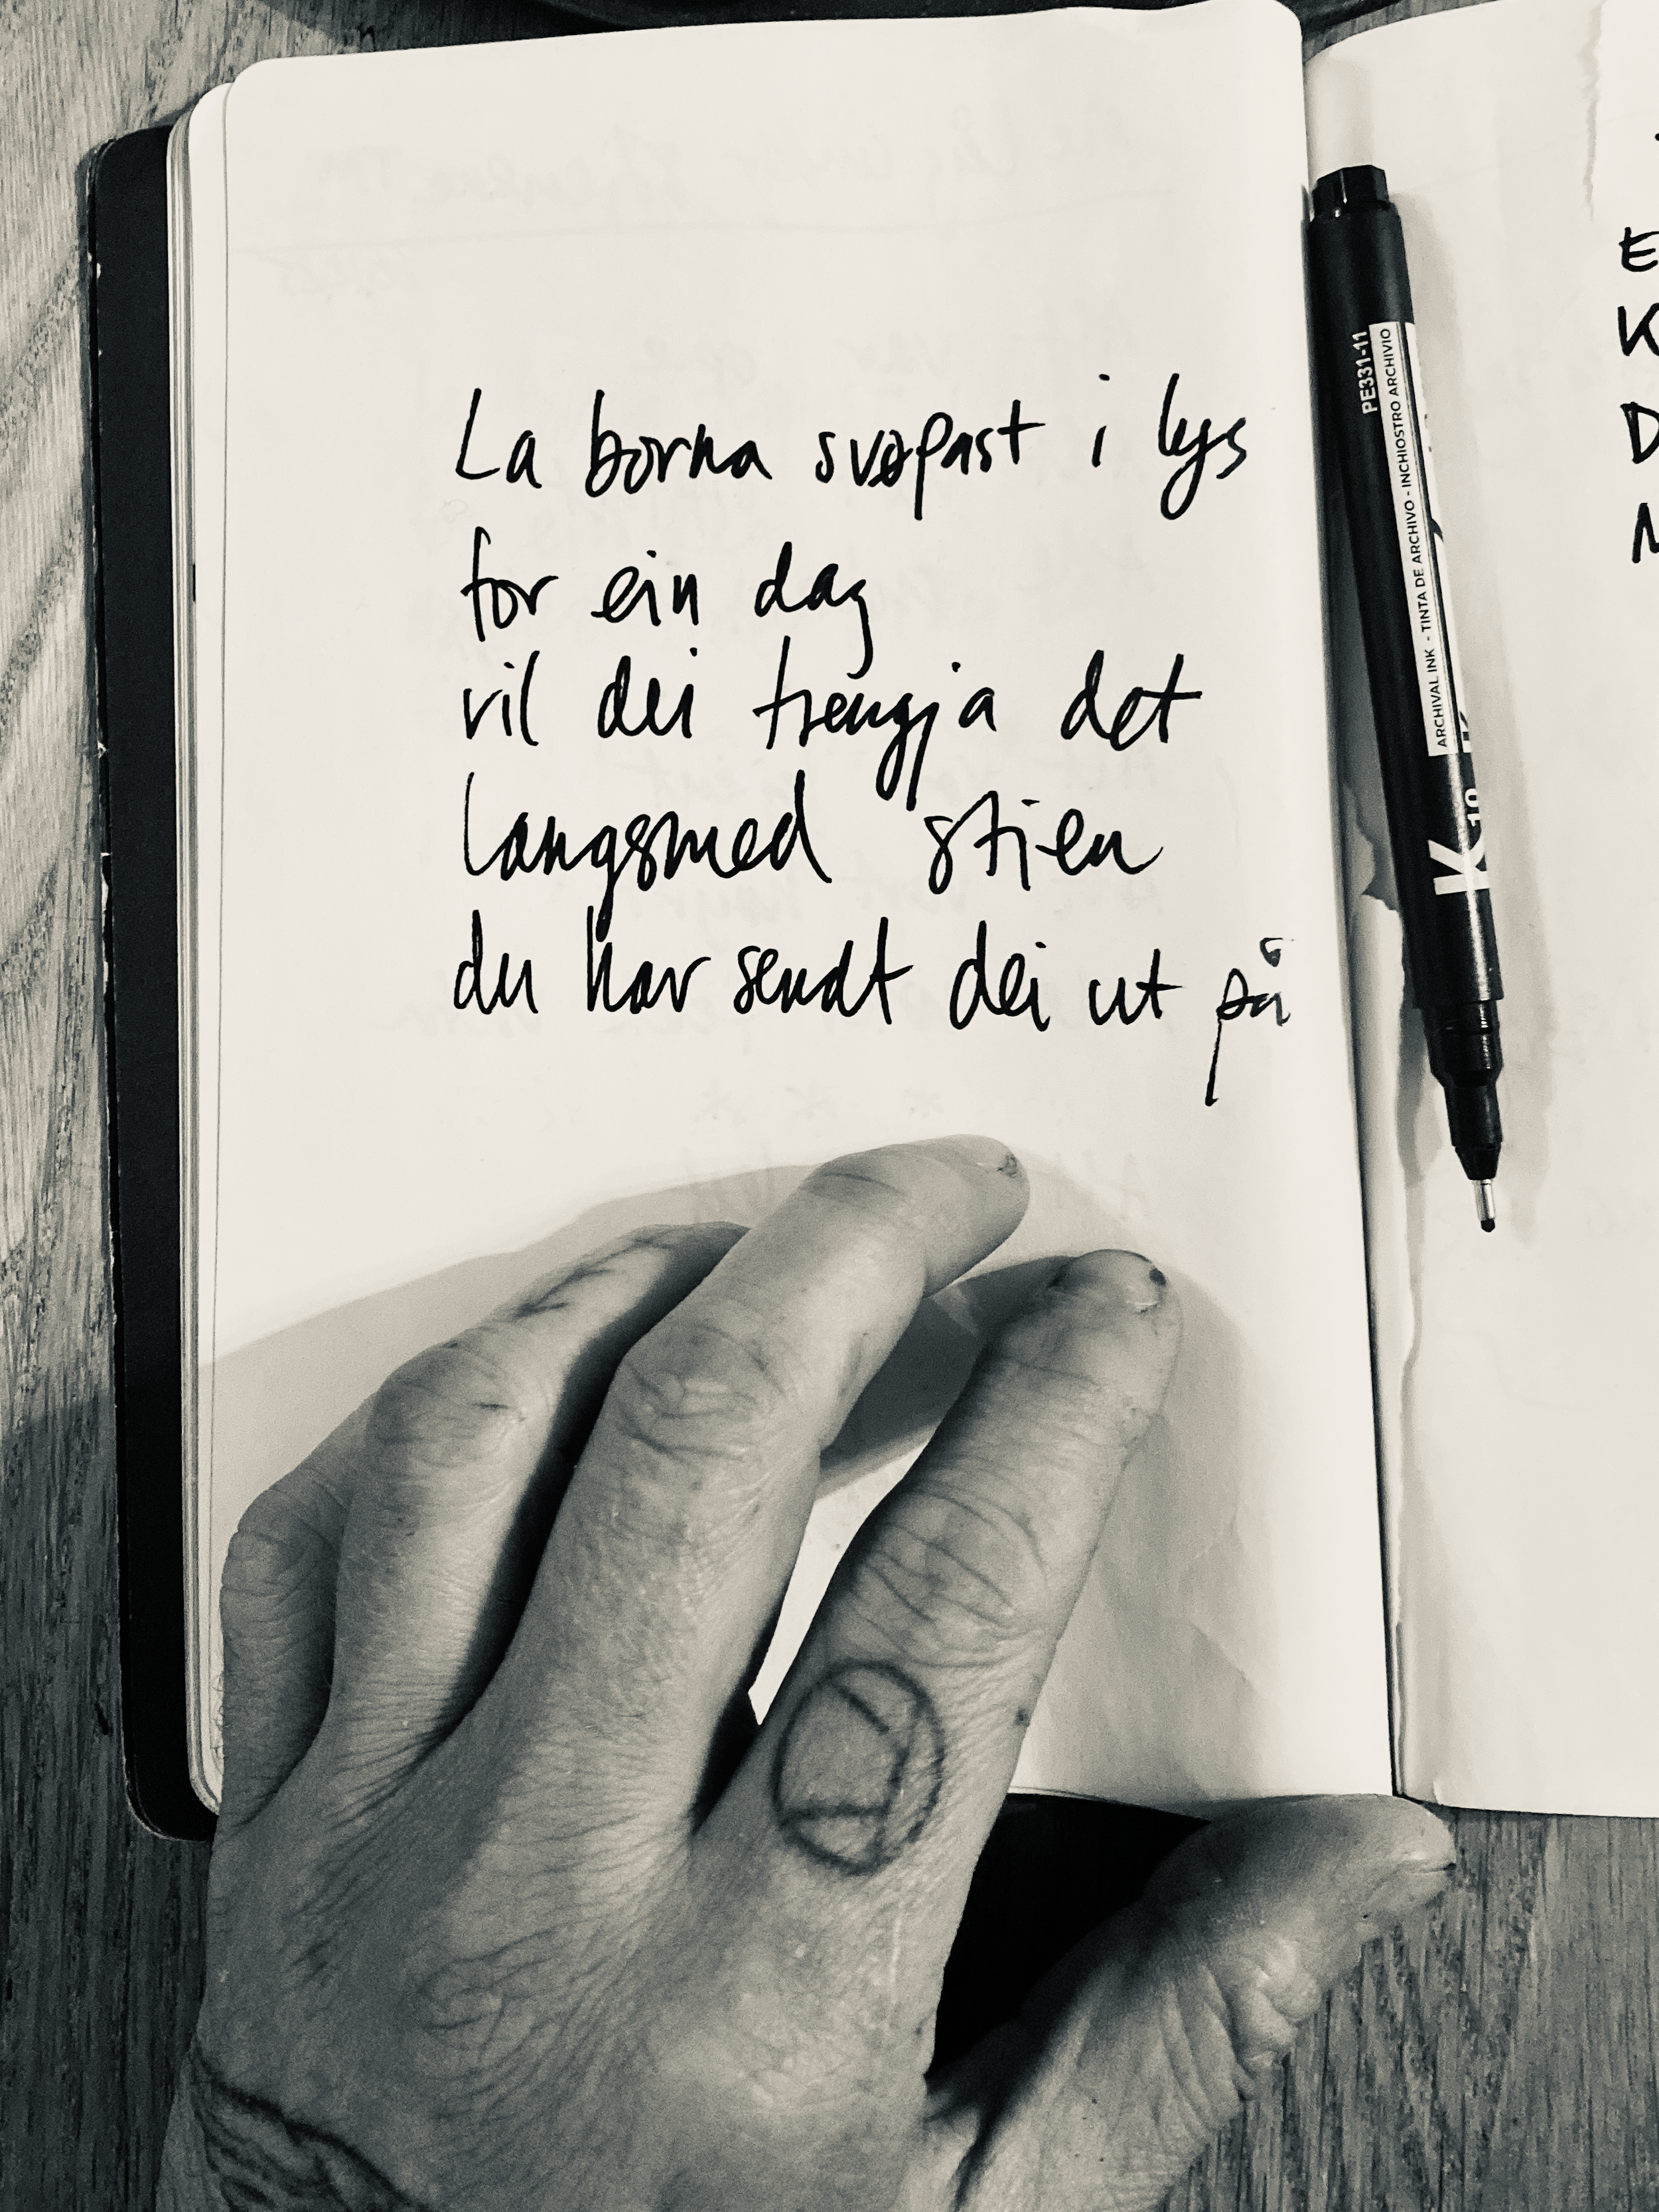 La borna svøpast i lys
for ein dag
vil dei trengja det
langsmed stien
du har sendt dei ut på
PE331-11
ARCHIVAL INK - TINTA DE ARCHIVO - INCHIOSTRO ARCHIVIO
K
E
K
D